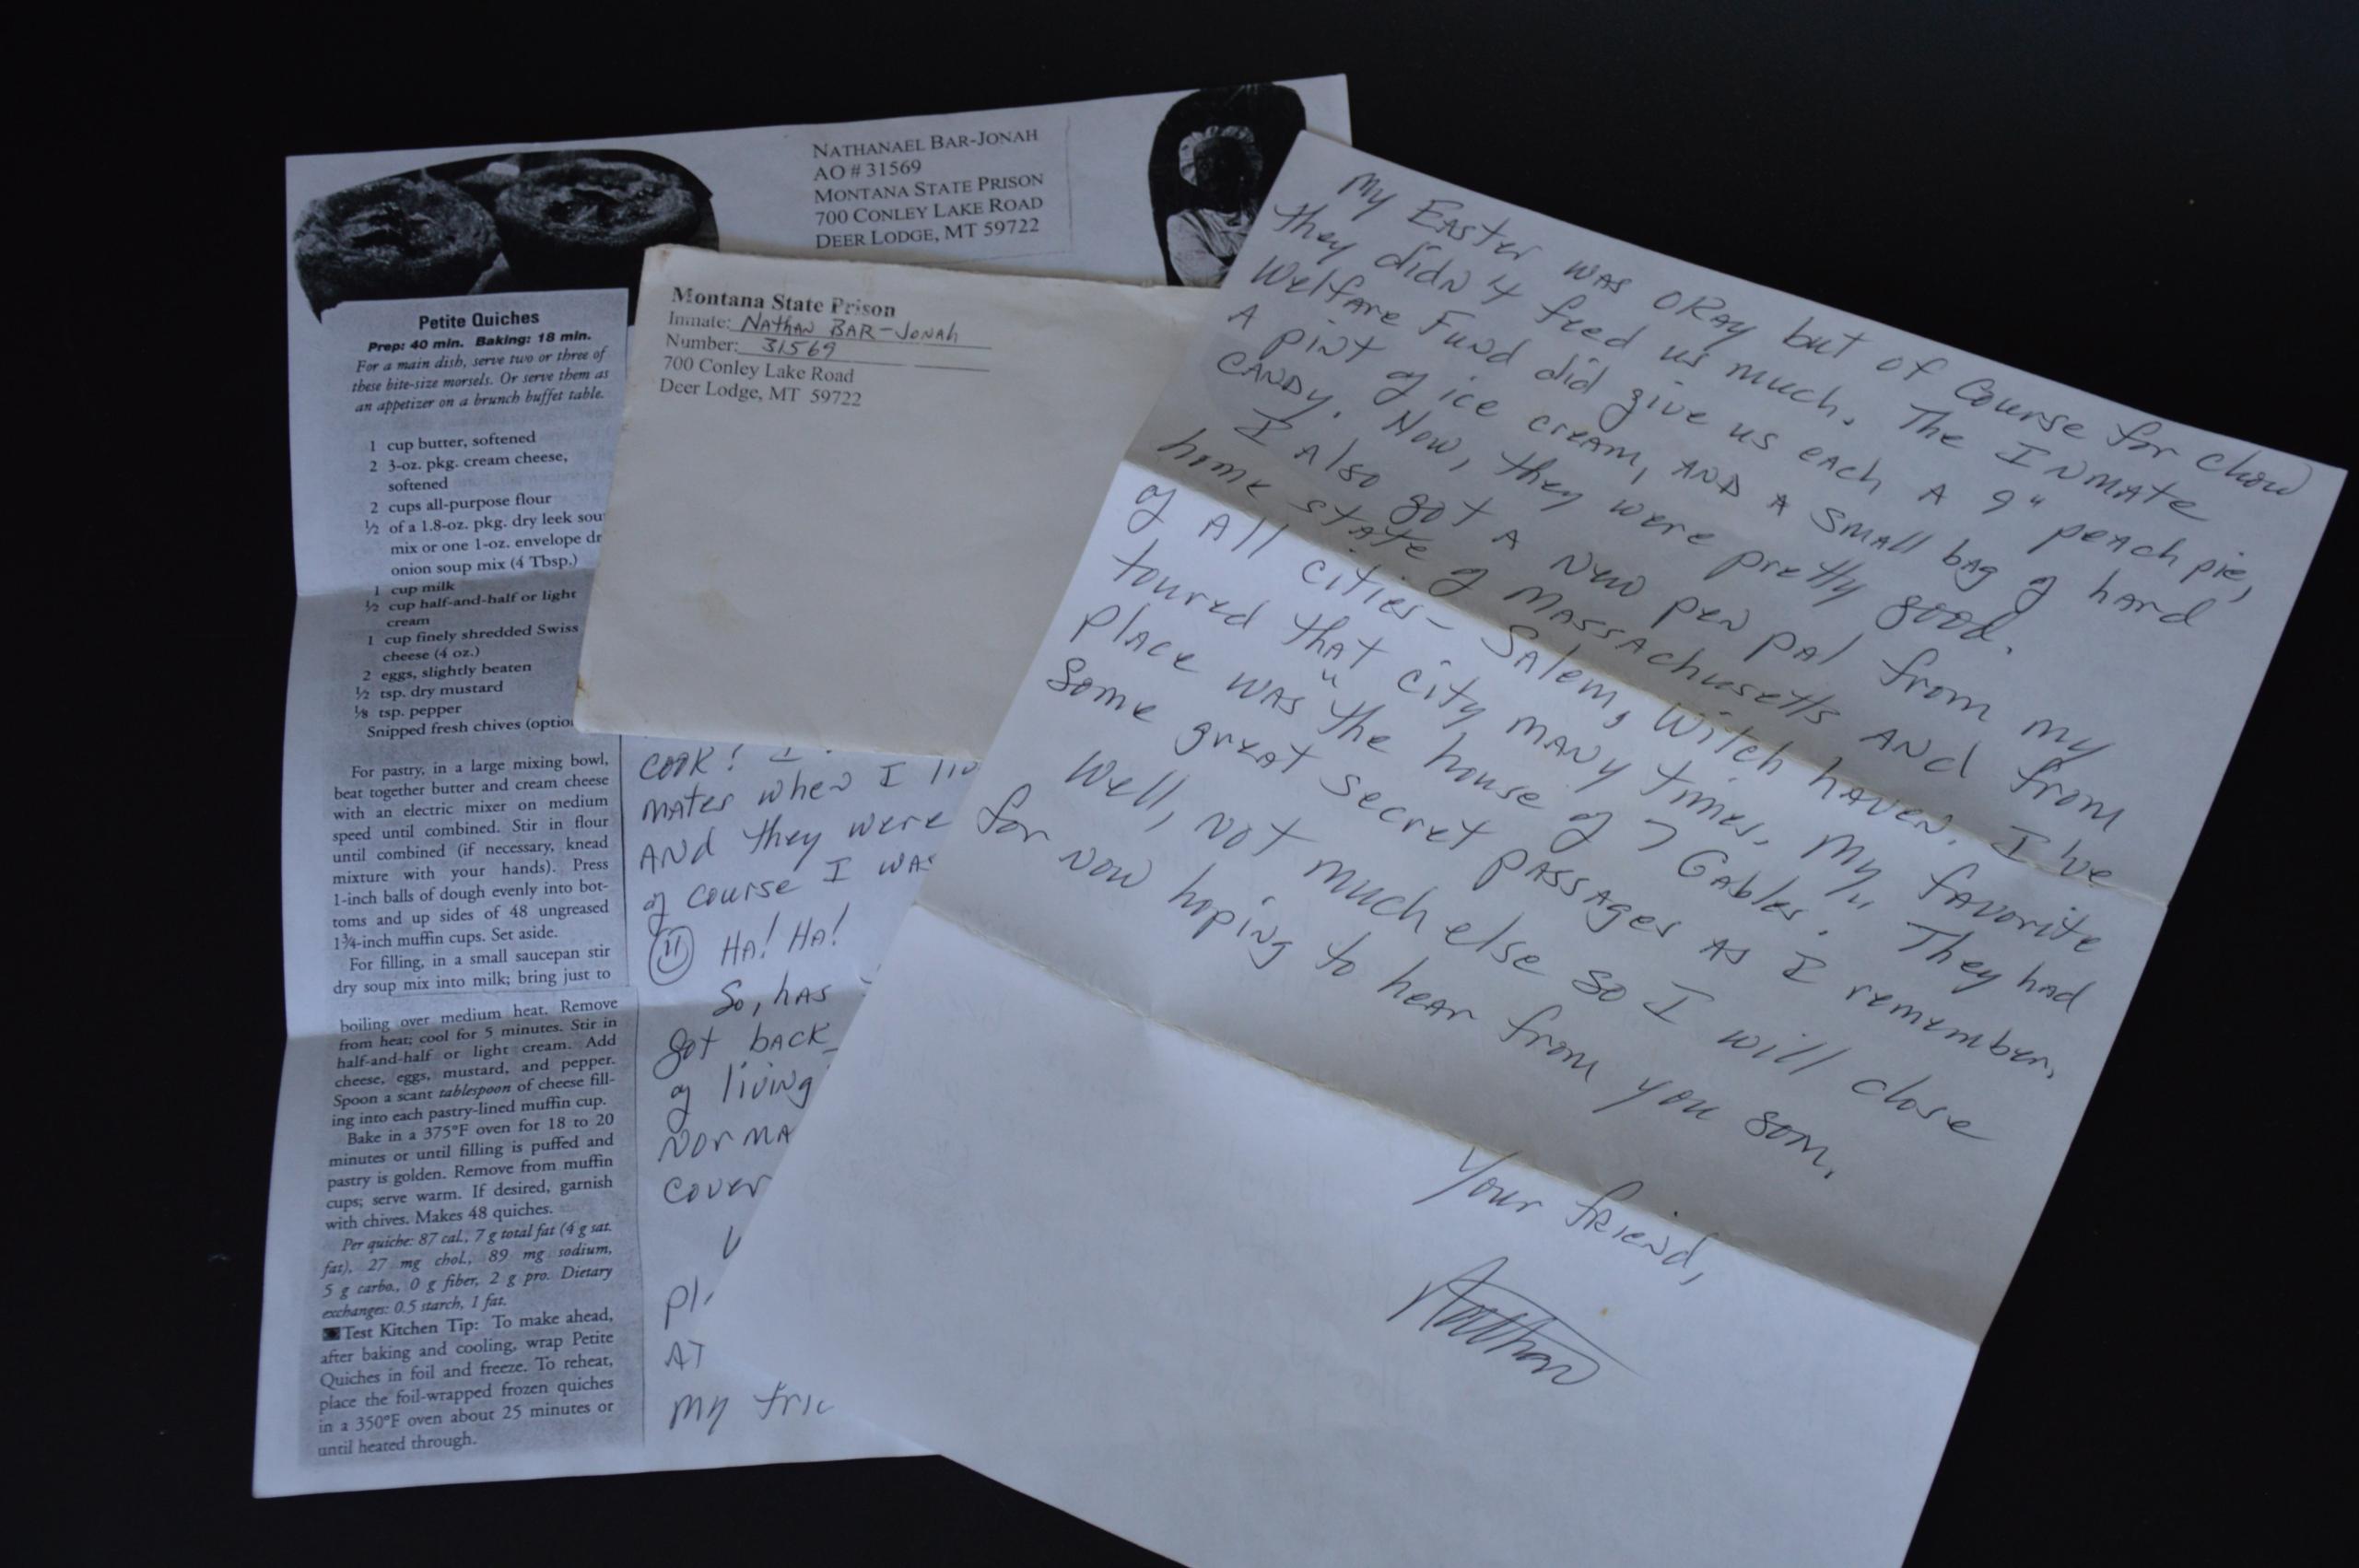 NATHANAEL BAR-JONAH
AO # 31569
MONTANA STATE PRISON
700 CONLEY LAKE ROAD
DEER LODGE, MT 59722
Petite Quiches
Prep: 40 min. Baking: 18 min.
For a main dish, serve two or three of
these bite-size morsels. Or serve them as
an appetizer on a brunch buffet table.
1 cup butter, softened
2 3-oz. pkg. cream cheese,
softened
2 cups all-purpose flour
½ of a 1.8-oz. pkg. dry leek sou
mix or one 1-oz. envelope dr
onion soup mix (4 Tbsp.)
1 cup milk
½ cup half-and-half or light
cream
1 cup finely shredded Swiss
cheese (4 oz.)
2 eggs, slightly beaten
½ tsp. dry mustard
⅛ tsp. pepper
Snipped fresh chives (optio
For pastry, in a large mixing bowl,
beat together butter and cream cheese
with an electric mixer on medium
speed until combined. Stir in flour
until combined (if necessary, knead
mixture with your hands). Press
1-inch balls of dough evenly into bot-
toms and up sides of 48 ungreased
1¾-inch muffin cups. Set aside.
For filling, in a small saucepan stir
dry soup mix into milk; bring just to
boiling over medium heat. Remove
from heat; cool for 5 minutes. Stir in
half-and-half or light cream. Add
cheese, eggs, mustard, and pepper.
Spoon a scant tablespoon of cheese fill-
ing into each pastry-lined muffin cup.
Bake in a 375°F oven for 18 to 20
minutes or until filling is puffed and
pastry is golden. Remove from muffin
cups; serve warm. If desired, garnish
with chives. Makes 48 quiches.
Per quiche: 87 cal., 7 g total fat (4 g sat.
fat), 27 mg chol., 89 mg sodium,
5 g carbo., 0 g fiber, 2 g pro. Dietary
exchanges: 0.5 starch, 1 fat.
Test Kitchen Tip: To make ahead,
after baking and cooling, wrap Petite
Quiches in foil and freeze. To reheat,
place the foil-wrapped frozen quiches
in a 350°F oven about 25 minutes or
until heated through.
COOK! I
MATES when I liv
AND they were
of course I WAS
HA! HA!
So, hAS
got bACK
of living
NORMA
cover
Pl
AT
My fric
Montana State Prison
Inmate: NATHAN BAR-JONAH
Number: 31569
700 Conley Lake Road
Deer Lodge, MT 59722
My EASter WAS OKAy but of Course for chow
they didn't feed us much. The INMATE
WelfARE FuNd did give us EACh A 9" peACh pie,
A piNT of ice creAm, AND A SmAll bAg of hArd
CANDy. Now, they were pretty good.
I Also got A New peN pAl from my
home STATE of MASSAChusetts AND from
of All cities - SAlem, Witch hAveN. I've
toured thAT city mANy times. My fAvorite
plAce WAS "the house of 7 GAbles". They hAd
Some greAT secret pASSAges AS I remember.
Well, NOT much else so I will close
for NOW hopiNg to heAr from you soon.
Your frieNd,
Nathan